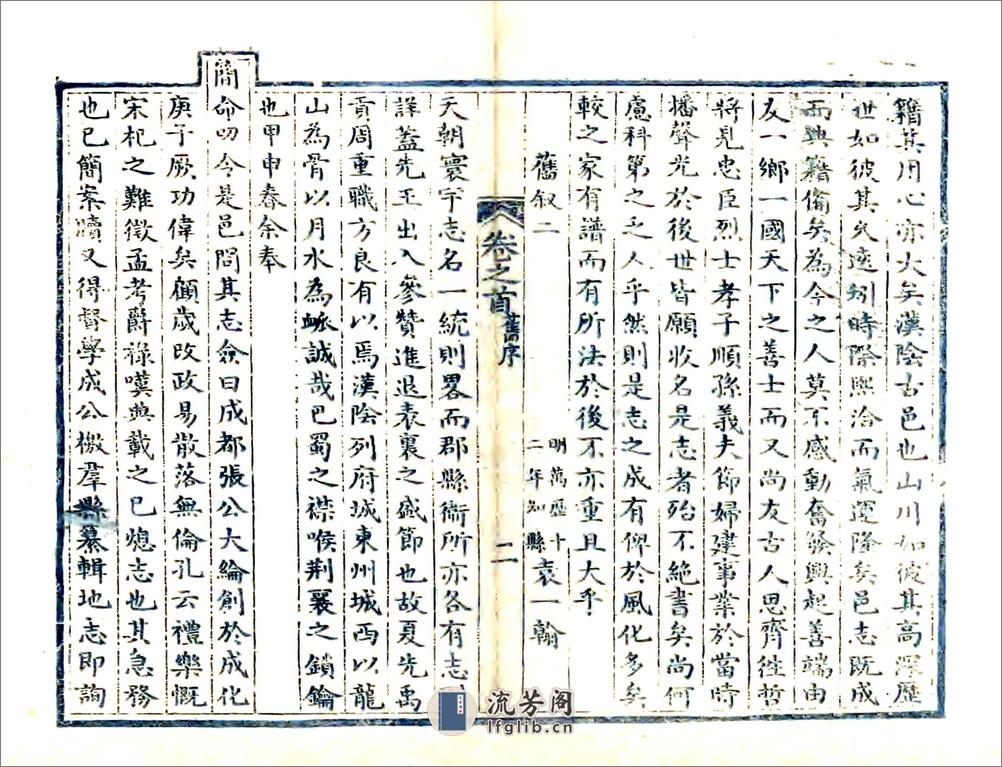 籍其用心亦大矣漢陰古邑也山川如彼其高深歷
世如彼其久遠矧時際熙洽而氣運隆矣邑志既成
而典籍備矣為今之人莫不感動奮發興起善端由
友一鄉一國天下之善士而又尚友古人思齊徃哲
將見忠臣烈士孝子順孫義夫節婦建事業於當時
播聲光於後世皆願收名是志者殆不絶書矣尚何
慮科第之乏人乎然則是志之成有俾於風化多矣
較之家有譜而有所法於後不亦重且大乎
舊叙二
明萬歷十
二年知縣
袁一翰
卷之首
舊序
二
天朝寰宇志名一統則畧而郡縣衞所亦各有志
詳葢先王出入參贊進退表裏之盛節也故夏先禹
貢周重職方良有以焉漢陰列府城東州城西以龍
山為骨以月水為脉誠哉巴蜀之襟喉荆襄之鎖鑰
也甲申春余奉
簡命叨令是邑問其志僉曰成都張公大綸創於成化
庚子厥功偉矣顧歲改政易散落無倫孔云禮樂慨
宋杞之難徵孟考爵祿嘆典載之已熄志也其急務
也已簡案牘又得督學成公檄羣縣纂輯地志即詢
流芳阁
lfglib.cn